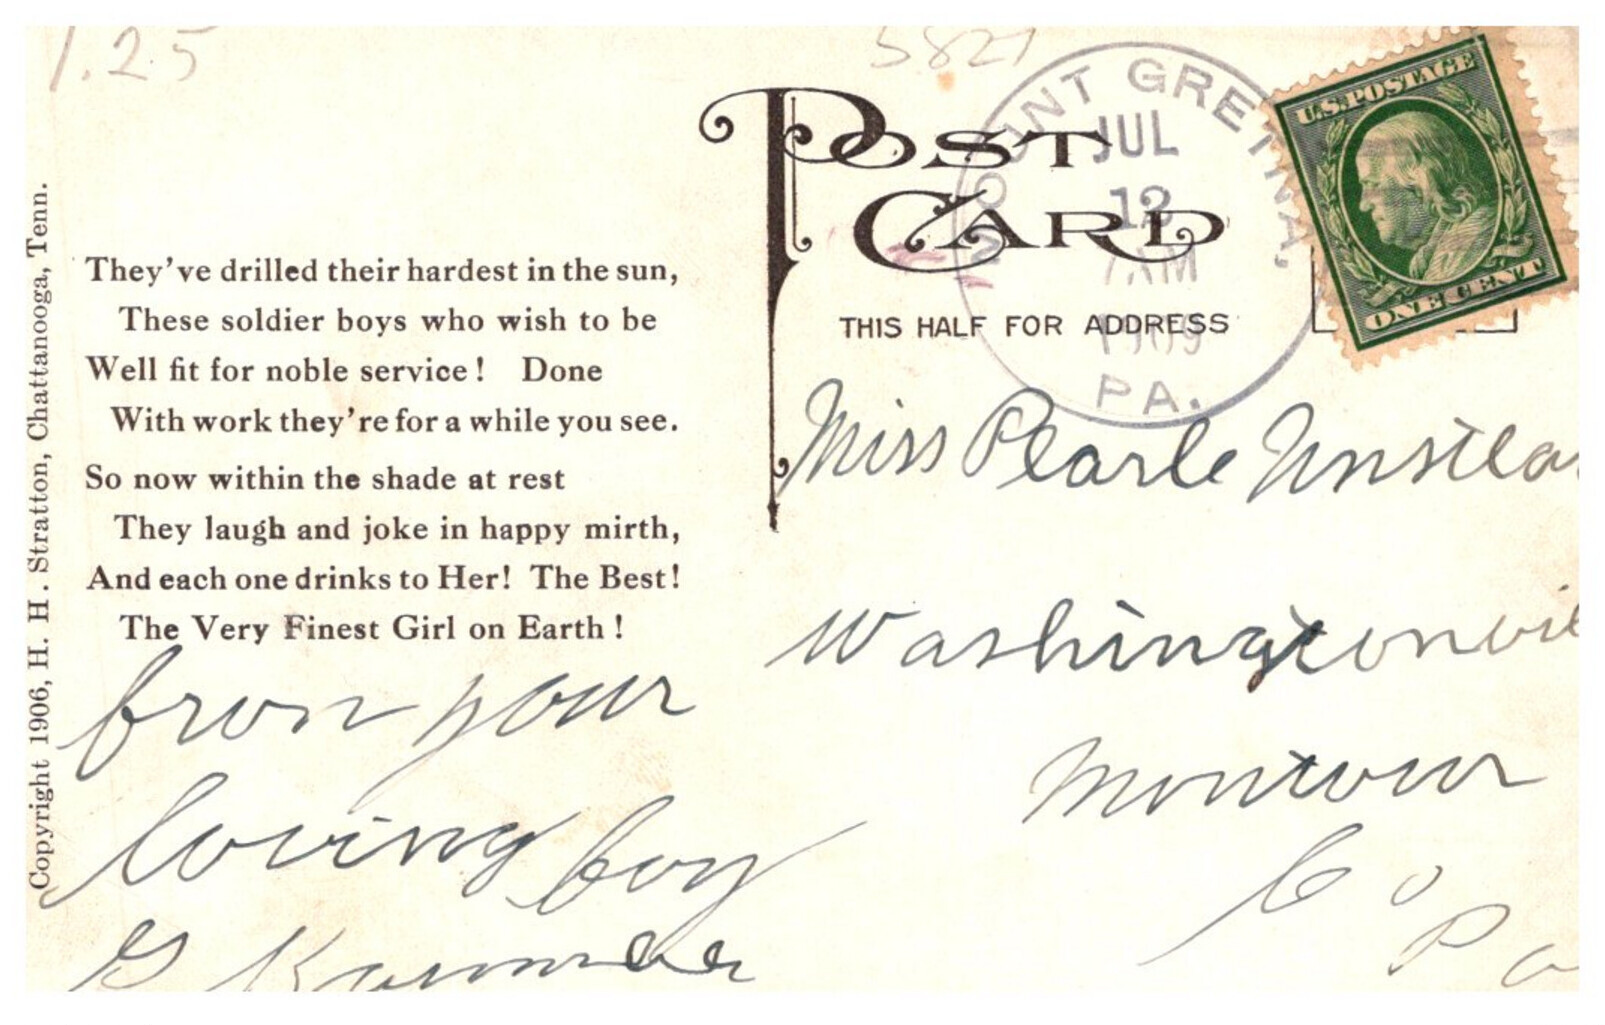 1.25
5821
MOUNT GRETNA,
JUL
12
7 AM
1909
PA.
U.S. POSTAGE
ONE CENT
POST
CARD
THIS HALF FOR ADDRESS
Copyright 1906, H. H. Stratton, Chattanooga, Tenn.
They've drilled their hardest in the sun,
These soldier boys who wish to be
Well fit for noble service! Done
With work they're for a while you see.
So now within the shade at rest
They laugh and joke in happy mirth,
And each one drinks to Her! The Best!
The Very Finest Girl on Earth!
from your
loving boy
G
Miss Pearle
Washingtonvil
Montour
Co
Pa